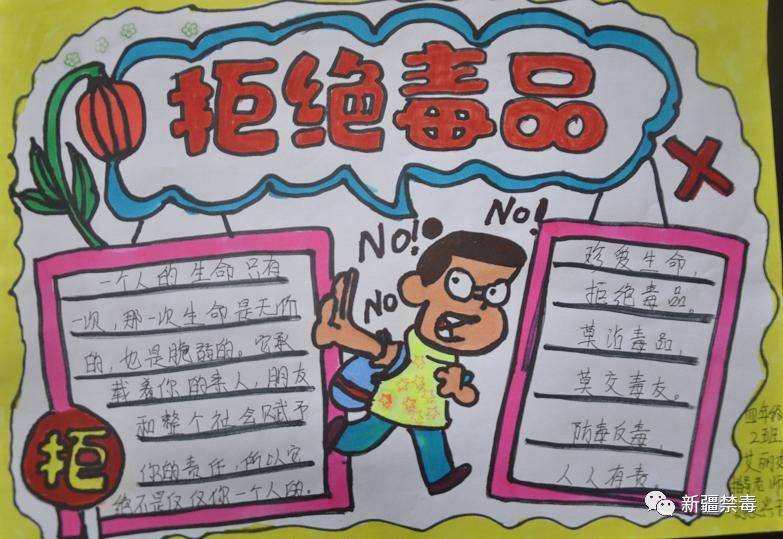 拒绝毒品
No!
No!
No
一个人的生命只有
一次，那一次生命是无价
的，也是脆弱的。它承
载着你的亲人，朋友
和整个社会赋予
你的责任，所以它
绝不是仅仅你一个人的。
拒
珍爱生命，
拒绝毒品。
莫沾毒品，
莫交毒友。
防毒反毒，
人人有责。
四年级
2班
指导老师
新疆禁毒